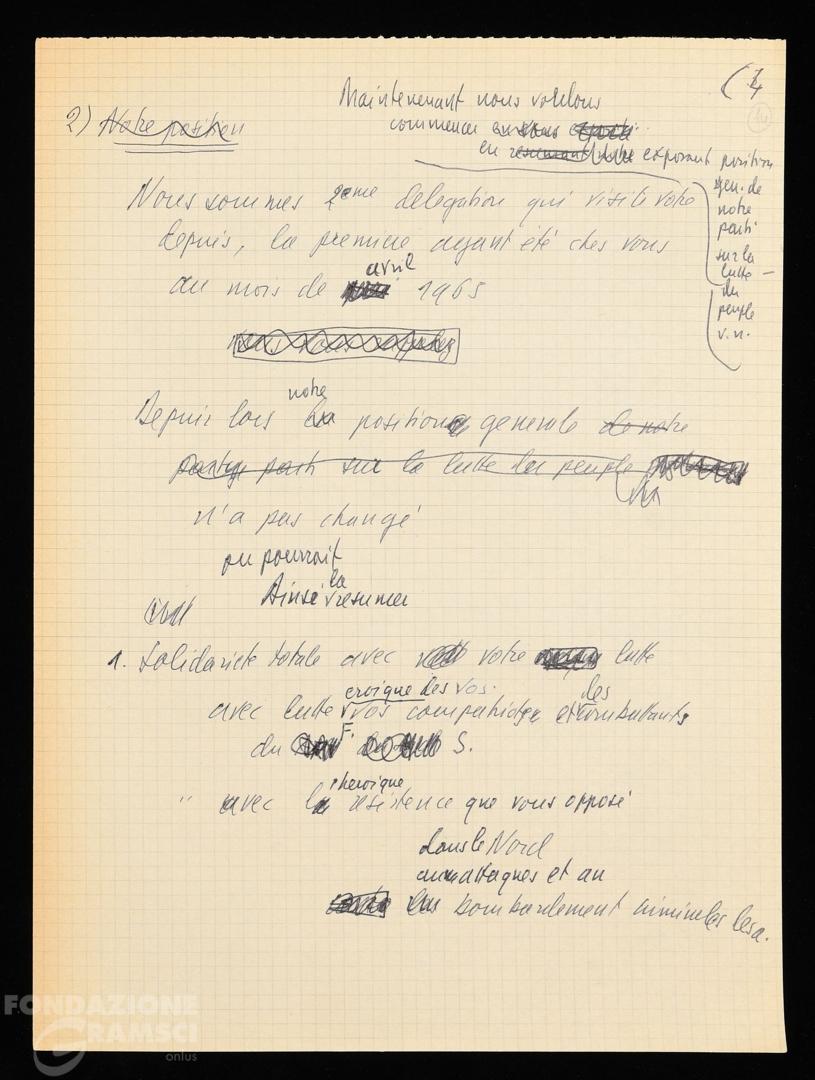 (4
14
Maintenant nous voulons
2) Notre position
commencer
en exposant position
gen. de
notre
parti
sur la
lutte
du
peuple
v.n.
Nous sommes 2ème delegation qui visite votre
depuis, la première ayant été chez vous
avril
au mois de 1965
notre
Depuis lors position generale de notre
parti sur la lutte du peuple
n'a pas changé
on pourrait
la
Ainsi resumer
1. Solidarieté totale avec votre lutte
eroique des vos. des
avec lutte vos compatriotes et combattants
F.
du S.
l'heroique
" avec resistence que vous opposé
dans le Nord
aux attaques et au
bombardement criminels
FONDAZIONE
GRAMSCI
onlus